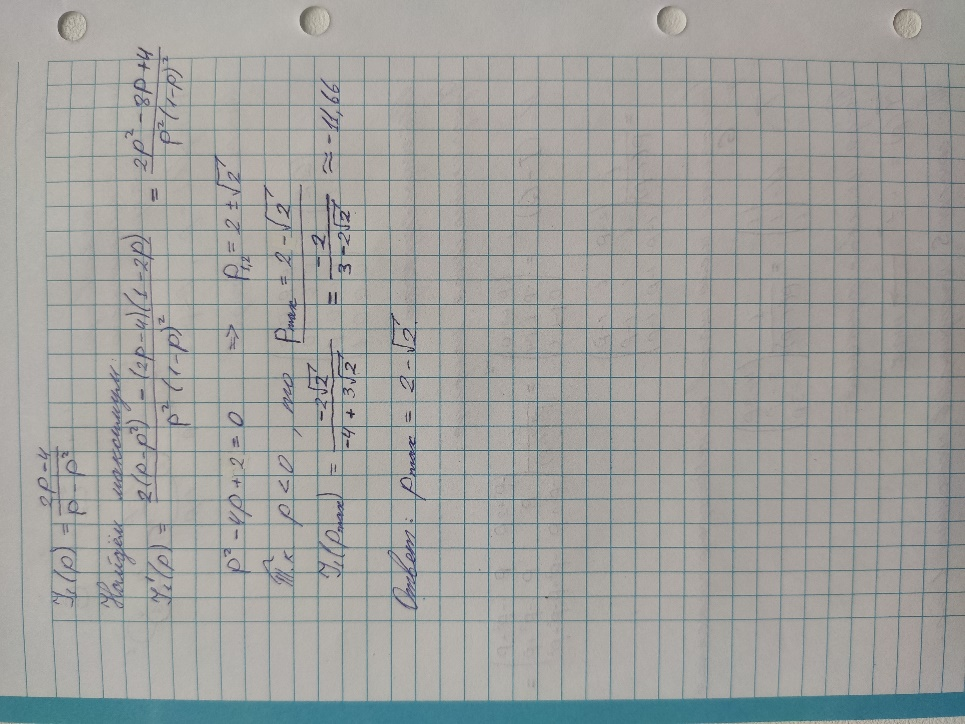 I₁(p) = (2p-4)/(p-p²)
Найдём максимум:
I₁'(p) = (2(p-p²) - (2p-4)(1-2p))/(p²(1-p)²) = (2p²-8p+4)/(p²(1-p)²)
p²-4p+2=0 => p₁,₂ = 2±√2
Т.к p<0, то pmax = 2-√2
I₁(pmax) = (-2√2)/(-4+3√2) = (-2)/(3-2√2) ≈ -11,66
Ответ: pmax = 2-√2